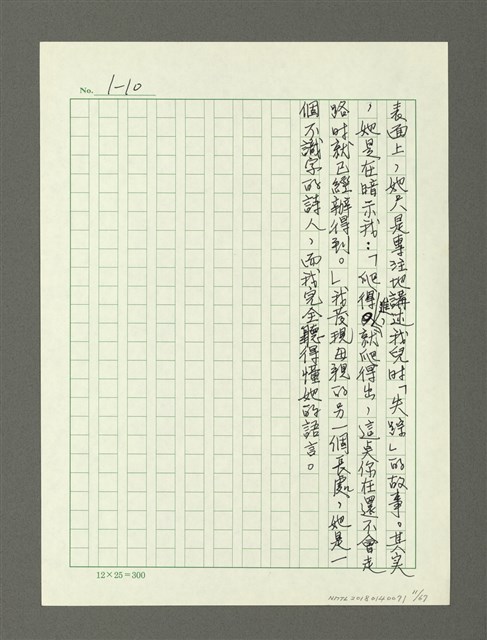 No. 1-10
表面上，她只是專注地講述我兒時「失踪」的故事。其实
，她是在暗示我：「爬得進，就爬得出，這点你在還不會走
路时就已經辦得到。」我發現母親的另一個長處，她是一
個不識字的詩人，而我完全聽得懂她的語言。
12×25=300
NMTL20180140071 11/67